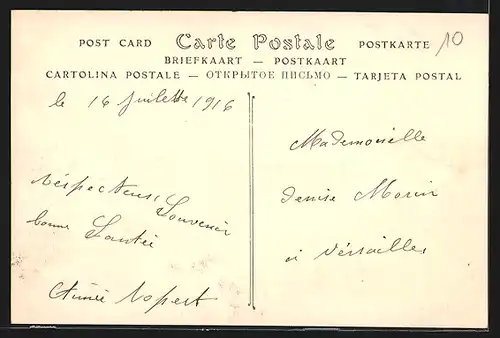 POST CARD Carte Postale POSTKARTE 10
BRIEFKAART — POSTKAART
CARTOLINA POSTALE — ОТКРЫТОЕ ПИСЬМО — TARJETA POSTAL
le 16 Juilette 1916
réspecteuse Souvenir
bonne Santée
Aimée Nopert
Mademoiselle
Denise Morin
à Vérsailles